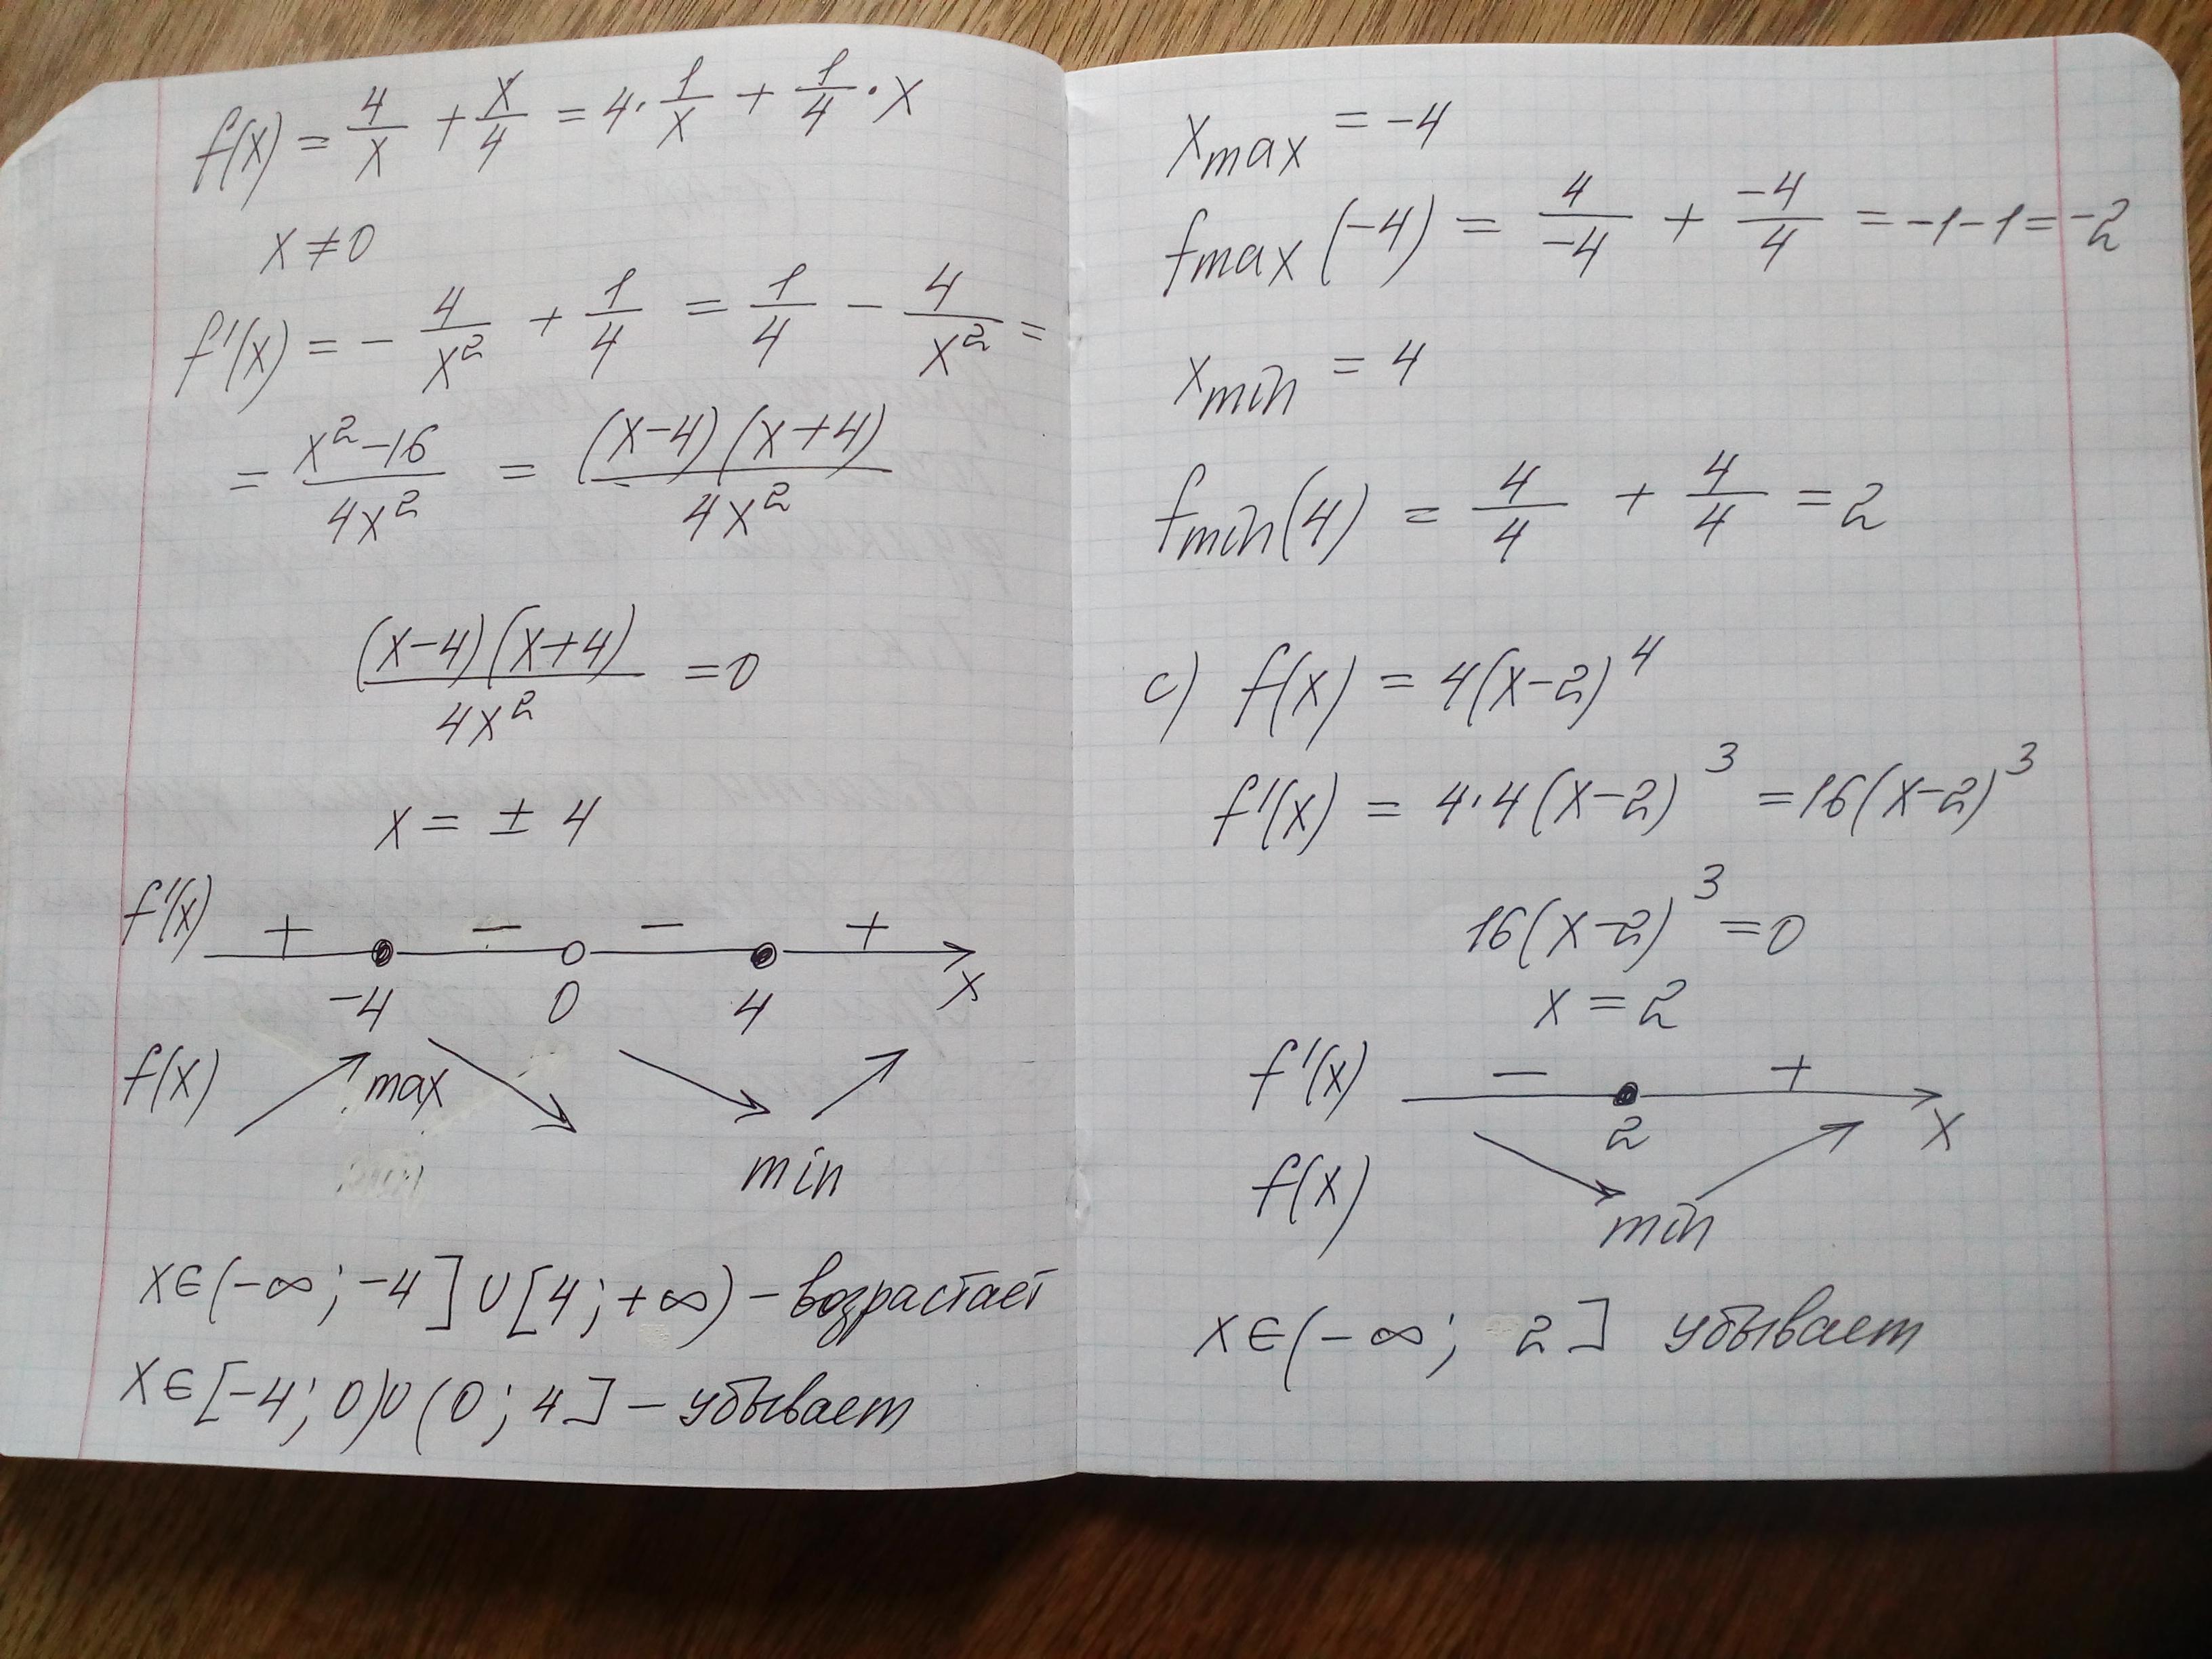 f(x) = 4/x + x/4 = 4 · 1/x + 1/4 · x
x ≠ 0
f'(x) = - 4/x² + 1/4 = 1/4 - 4/x² =
= x²-16/4x² = (x-4)(x+4)/4x²
(x-4)(x+4)/4x² = 0
x = ± 4
f'(x) + - - +
-4 0 4 x
f(x) max
min
x∈(-∞; -4] ∪ [4; +∞) - возрастает
x∈[-4; 0)∪(0; 4] - убывает
xmax = -4
fmax(-4) = 4/-4 + -4/4 = -1-1=-2
xmin = 4
fmin(4) = 4/4 + 4/4 = 2
c) f(x) = 4(x-2)⁴
f'(x) = 4·4(x-2)³ = 16(x-2)³
16(x-2)³ = 0
x = 2
f'(x) - +
2 x
f(x) min
x∈(-∞; 2] убывает